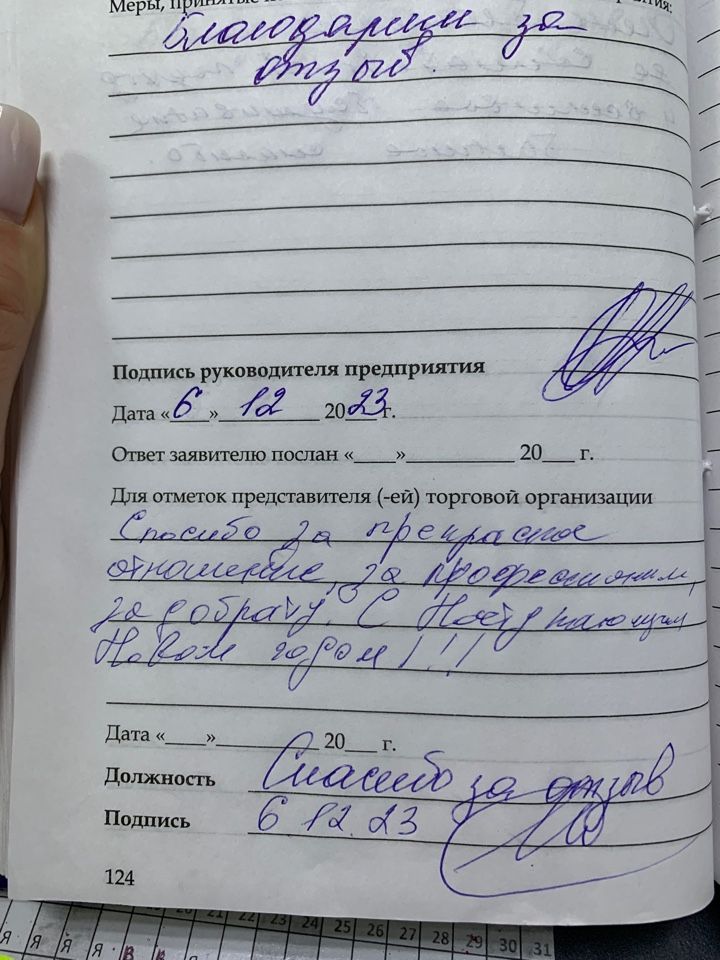 Меры, принятые
Благодарим за
отзыв.
Подпись руководителя предприятия
Дата «6» 12 2023 г.
Ответ заявителю послан «____»___________ 20___ г.
Для отметок представителя (-ей) торговой организации
Спосибо за прекрасное
отношение, за професионизм,
за доброту. С Наступающим
Новом годом!!!
Дата «____»__________ 20___ г.
Должность Спасибо за отзыв
Подпись 6 12 23
124
20 21 22 23 24 25 26 27 28 29 30 31
Я Я Я Я В В